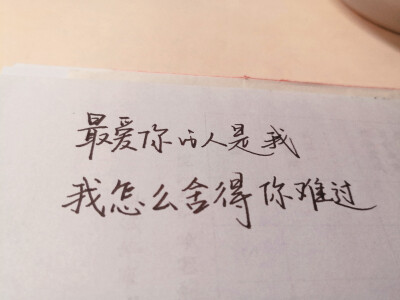 最爱你的人是我
我怎么舍得你难过